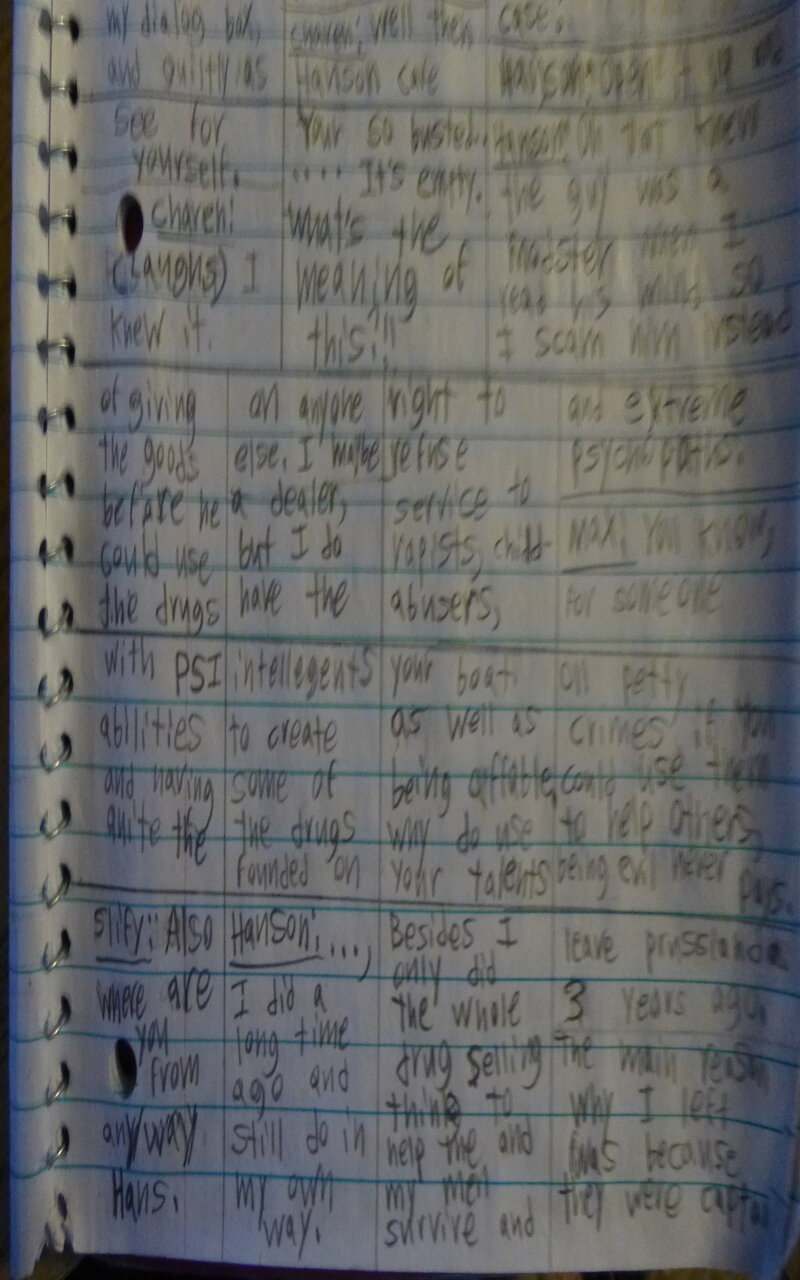 my dialog box,
and guilty as
charen: Well then
Hanson care
case.
Hanson: open it up and
see for
yourself.
charen:
(Laughs) I
knew it.
Your so busted..
.... It's empty.
What's the
meaning of
this!!
Hanson: Oh knew
the guy was a
when I
read his mind so
I scam him instead
of giving
the goods
before he
could use
the drugs
on anyone
else. I maybe
a dealer,
but I do
have the
right to
refuse
service to
rapists, child
abusers,
and extreme
psychopaths.
Max: You know,
for someone
with PSI
abilities
and having
quite the
intellegents
to create
some of
the drugs
founded on
your boat
as well as
being affable,
why do use
your talents
on petty
crimes if you
could use them
to help others,
being evil never pays.
slify: Also
where are
you
from
anyway
Hans.
Hanson: ...,
I did a
long time
ago and
still do in
my own
way.
Besides I
only did
the whole
drug selling
think to
help the and
my men
survive and
leave prusslanda
3 years ago
the main reason
why I left
was because
they were